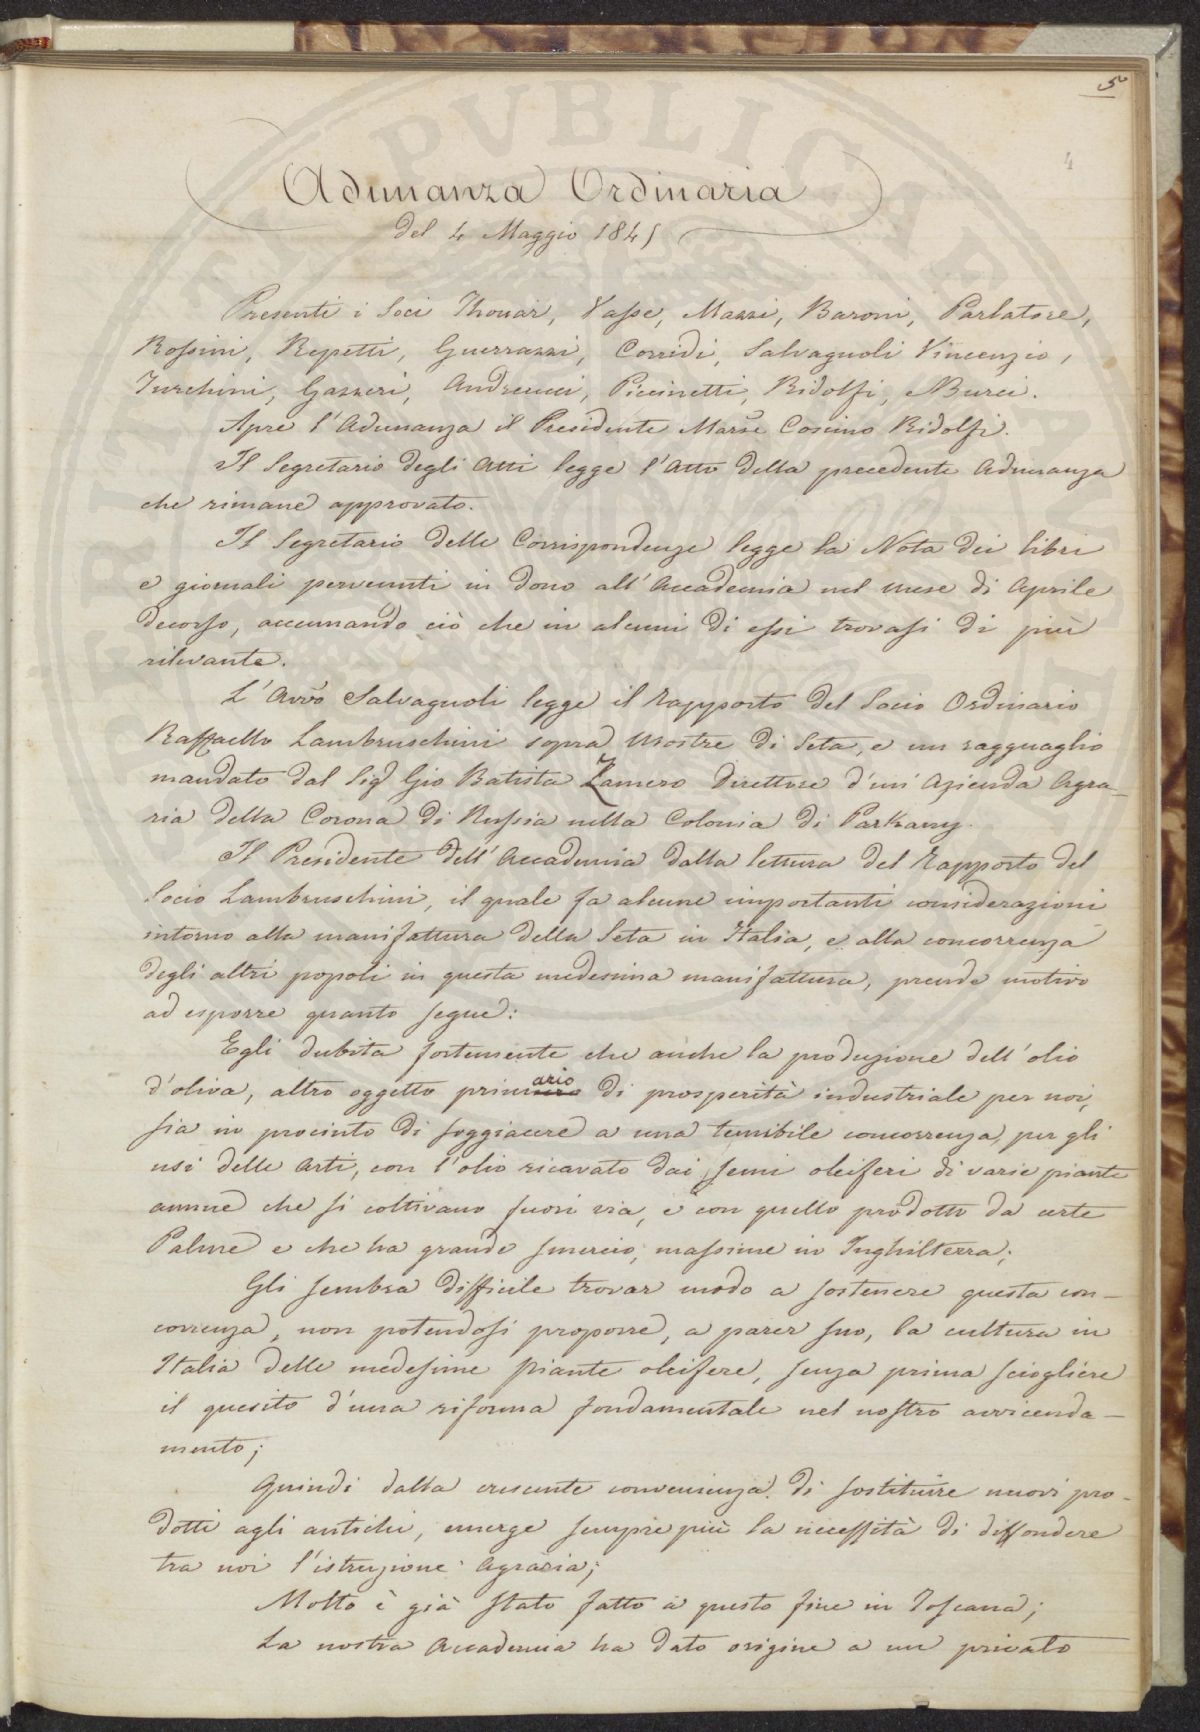 5
4
Adunanza Ordinaria
del 4 Maggio 1845
Presenti i Soci Thouar, Vasse, Mazzi, Baroni, Parlatore,
Rossini, Repetti, Guerrazzi, Corridi, Salvagnoli Vincenzio,
Turchini, Gazzeri, Andreucci, Piccinetti, Ridolfi, Burci.
Apre l'Adunanza il Presidente March.e Cosimo Ridolfi.
Il Segretario degli Atti legge l'Atto della precedente Adunanza
che rimane approvato.
Il Segretario delle Corrispondenze legge la Nota dei libri
e giornali pervenuti in dono all'Accademia nel mese di Aprile
decorso, accennando ciò che in alcuni di essi trovasi di più
rilevante.
L'Avv.o Salvagnoli legge il Rapporto del Socio Ordinario
Raffaello Lambruschini sopra Mostre di Seta, e un ragguaglio
mandato dal Sig. Gio Batista Zamero Direttore d'un' Azienda Agra-
ria della Corona di Russia nella Colonia di Parkany.
Il Presidente dell'Accademia dalla lettura del Rapporto del
Socio Lambruschini, il quale fa alcune importanti considerazioni
intorno alla manifattura della Seta in Italia, e alla concorrenza
degli altri popoli in questa medesima manifattura, prende motivo
ad esporre quanto segue:
Egli dubita fortemente che anche la produzione dell'olio
d'oliva, altro oggetto primario di prosperità industriale per noi,
sia in procinto di soggiacere a una temibile concorrenza, per gli
usi delle Arti, con l'olio ricavato dai semi oleiferi di varie piante
annue che si coltivano fuori via, e con quello prodotto da certe
Palme e che ha grande smercio, massime in Inghilterra;
Gli sembra difficile trovar modo a sostenere questa con-
correnza, non potendosi proporre, a parer suo, la cultura in
Italia delle medesime piante oleifere, senza prima sciogliere
il quesito d'una riforma fondamentale nel nostro avvicenda-
mento;
Quindi dalla crescente convenienza di sostituire nuovi pro-
dotti agli antichi, emerge sempre più la necessità di diffondere
tra noi l'istruzione Agraria;
Molto è già stato fatto a questo fine in Toscana;
La nostra Accademia ha dato origine a un privato